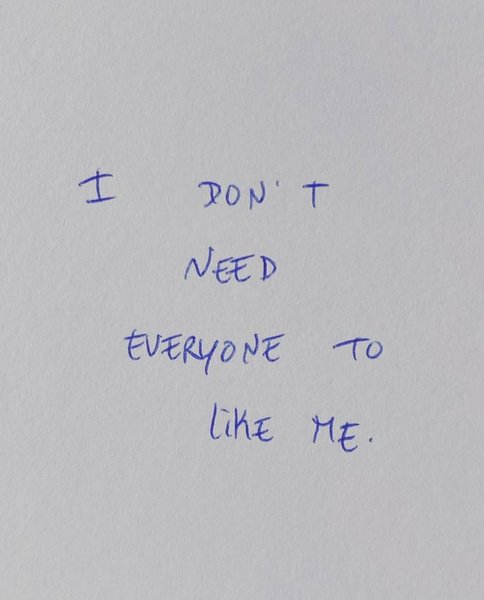 I DON'T
NEED
EVERYONE TO
LIKE ME.